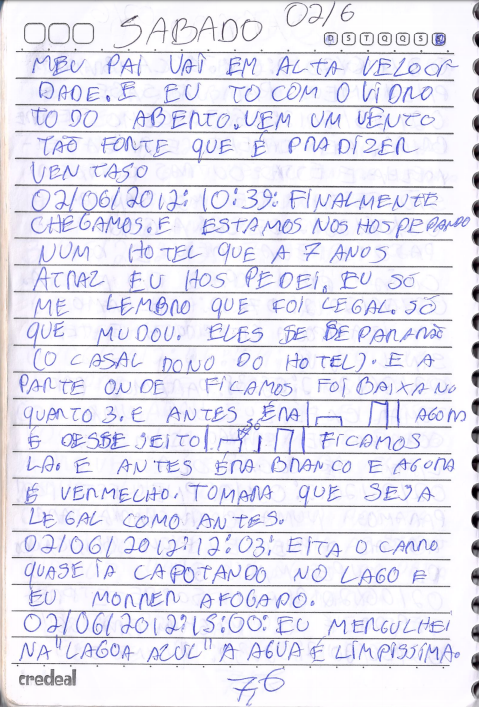 SABADO 02/6
D S T Q Q S S
MEU PAI VAI EM ALTA VELOCI
DADE. E EU TO COM O VIDRO
TODO ABERTO. VEM UM VENTO
TÃO FORTE QUE É PRA DIZER
VENTASO
02/06/2012: 10:39: FINALMENTE
CHEGAMOS. E ESTAMOS NOS HOSPEDANDO
NUM HOTEL QUE A 7 ANOS
ATRAZ EU HOSPEDEI. EU SÓ
ME LEMBRO QUE FOI LEGAL. SÓ
QUE MUDOU. ELES SE SEPARARÃO
(O CASAL DONO DO HOTEL). E A
PARTE ONDE FICAMOS FOI BAIXA NO
QUARTO 3. E ANTES ÉRA AGORA
É DESSE JEITO FICAMOS
LA. E ANTES ÉRA BRANCO E AGORA
É VERMELHO. TOMARA QUE SEJA
LEGAL COMO ANTES.
02/06/2012: 12:03: EITA O CARRO
QUASE IA CAPOTANDO NO LAGO E
EU MORRER AFOGADO.
02/06/2012: 15:00: EU MERGULHEI
NA "LAGOA AZUL" A AGUA É LIMPISSIMA.
credeal
76